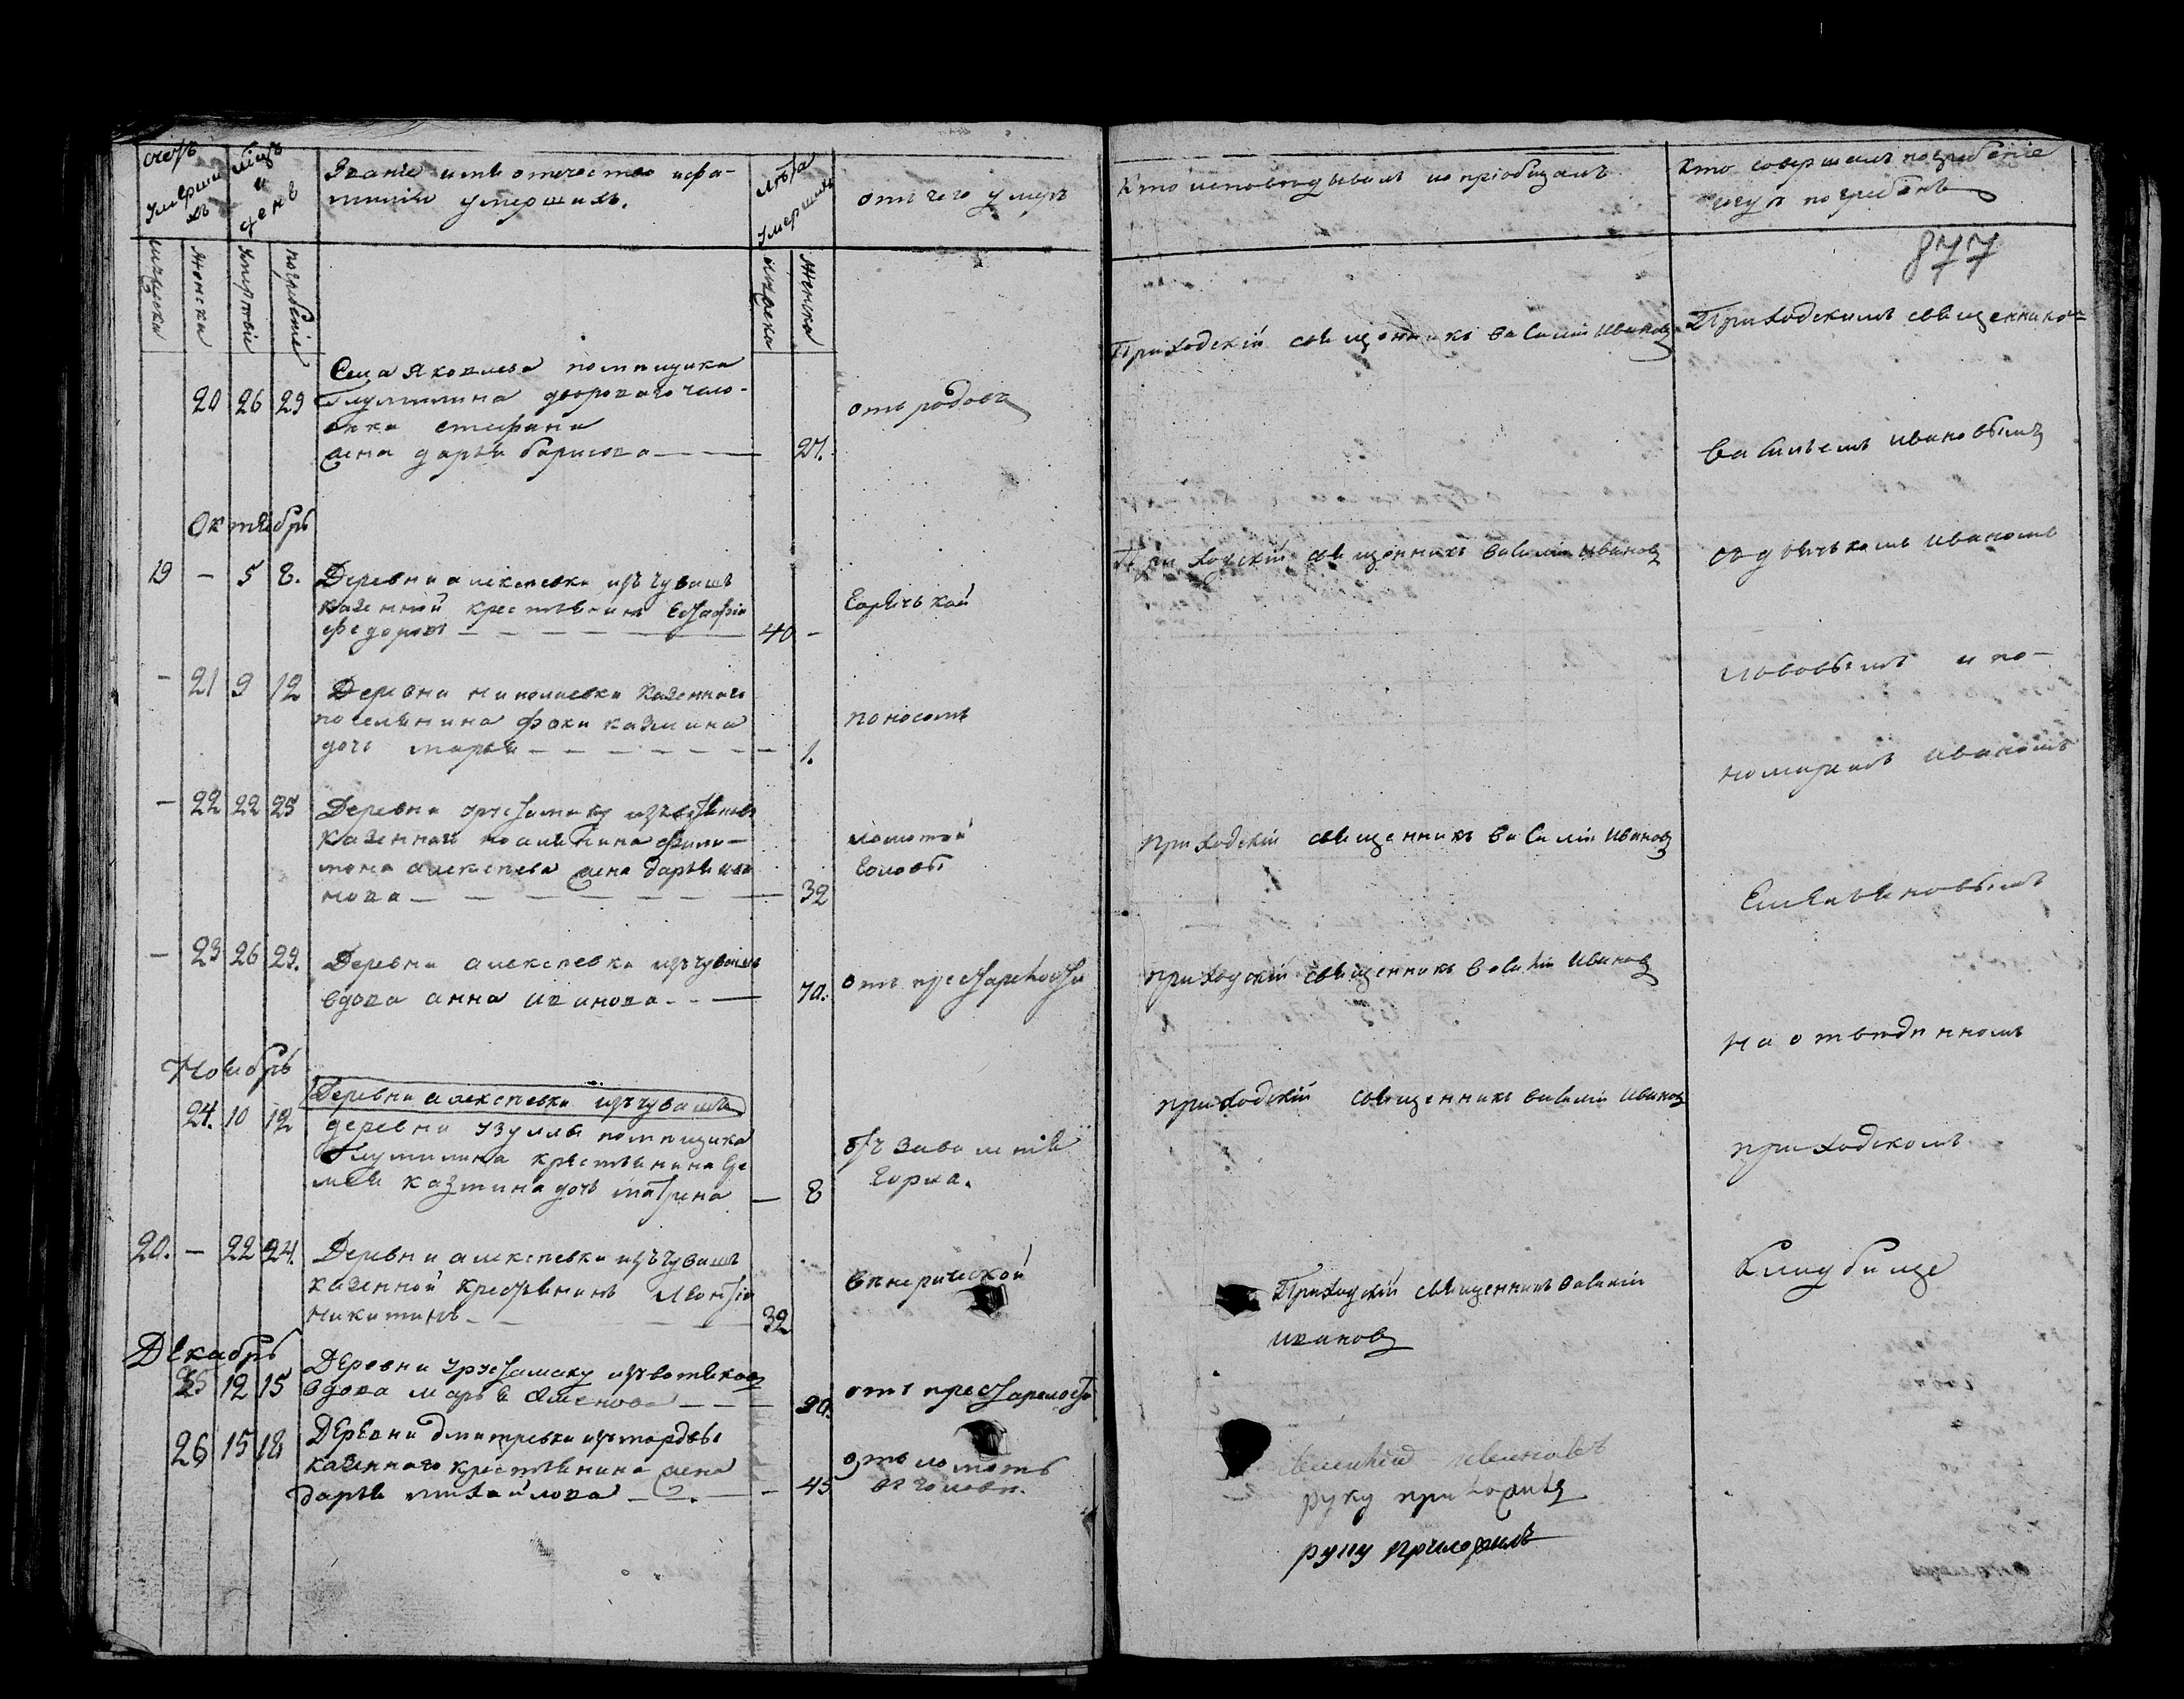 счетъ умершихъ
мѣсяцъ и день
Званіе имя отечество и фа-
милія умершихъ.
лѣта умершихъ
отъ чего умеръ
Кто исповѣдывалъ и пріобщалъ
Кто совершалъ погребеніе
и гдѣ погребенъ
мужска
женска
смерти
погребеніе
мужска
женска
877
Села Яковлева помѣщика
20 26 29 двороваго чело-
вѣка стефана
жена дарья борисова 27.
отъ родовъ
Приходскій священникъ Василій Ивановъ
Приходскимъ священнико=
Васильемъ Ивановымъ
Октябрь
19 – 5 8. Деревни алексѣевки изъ чувашъ
казенной крестьянинъ
федоровъ 40 –
горячькой
Приходскій священникъ Василій Ивановъ
съ дьячькомъ Иваномъ
– 21 9 12 Деревни николаевки казеннаго
поселянина фоки казмина
дочь марья – 1.
поносомъ
и по-
номаремъ Иваномъ
– 22 22 25 Деревни
казеннаго фили-
мона алексѣева жена дарья ива
нова 32
ломотой
головы
приходскій священникъ Василій Ивановъ
Емельяновымъ
– 23 26 29. Деревни алексѣевки изъ чувашъ
вдова анна иванова 70.
отъ престарелости
приходскій священникъ Василій Ивановъ
на отведенномъ
Ноябрь
Деревни алексѣевки изъ чувашъ
24. 10 12 деревни помѣщика
крестьянина
казмина дочь матрина – 8
горла.
приходскій священникъ Василій Ивановъ
приходскомъ
20. – 22 24. Деревни алексѣевки изъ чувашъ
казенной крестьянинъ Леонтій
никитинъ 32
венерической
Приходскій священникъ Василій
Ивановъ
кладбище
Декабрь
25 12 15 Деревни изъ вотяковъ
вдова марья 90.
отъ престарелости
26 15 18 Деревни дмитревки изъ мордвы
казеннаго крестьянина жена
дарья михайлова – 45
отъ ломоты
въ головѣ.
руку приложилъ
руку приложилъ